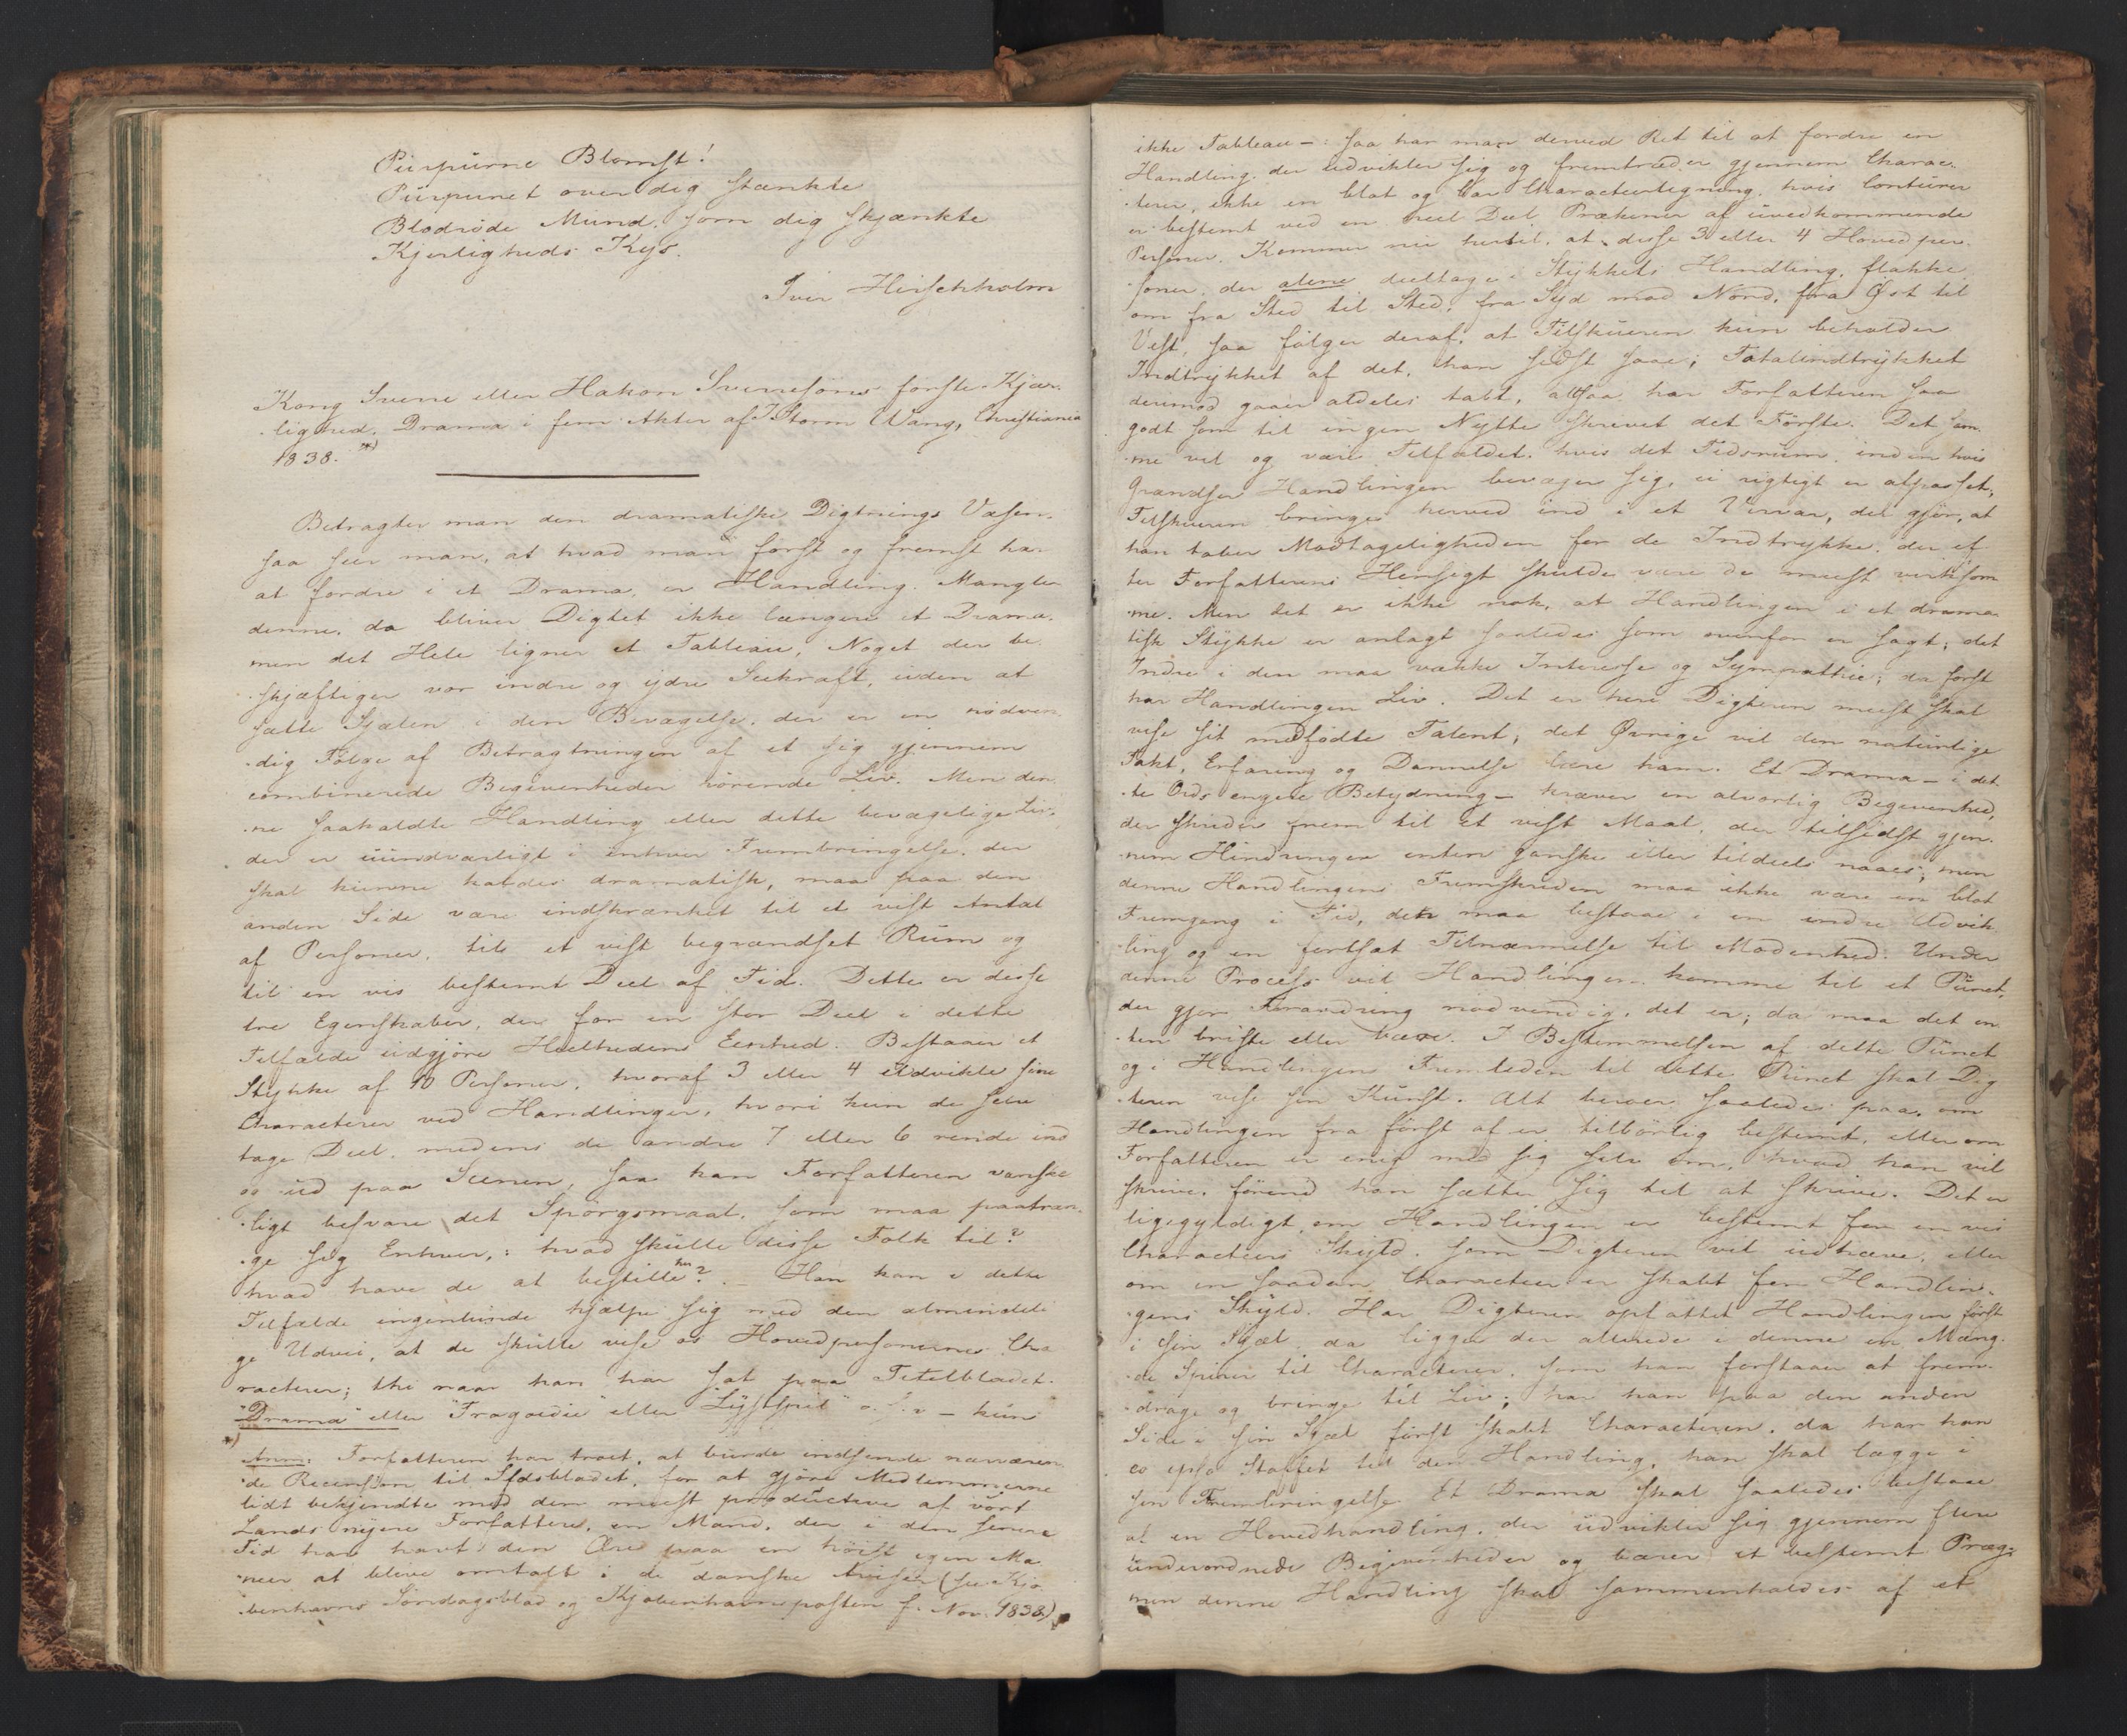 Purpurne Blomst!
Purpuret over dig stænkte
Blodrøde Mund, som dig skjænkte
Kjerligheds Kys.
Iver Hirschholm
Kong Sverre eller Hakon Sverresøns første Kjær-
-lighed. Drama i fem Akter af J Storm Wang, Christiania
1838. *)
Betragter man den dramatiske Digtnings Væsen,
saa seer man, at hvad man først og fremst har
at fordre i et Drama, er Handling. Mangler
denne, da bliver Digtet ikke længere et Drama,
men det Hele ligner et Tableau, Noget der be-
-skjæftiger vor indre og ydre Seekraft, uden at
sætte Sjælen i den Bevægelse, der er en nødven-
-dig Følge af Betragtningen af et sig gjennem
combinerede Begivenheder rörende Liv. Men den-
-ne saakaldte Handling eller dette bevægelige Liv,
der er uundværligt i enhver Frembringelse, der
skal kunne kaldes dramatisk, maa paa den
anden Side være indskrænket til et vist Antal
af Personer, til et vist begrændset Rum og
til en vis bestemt Deel af Tid. Dette er disse
tre Egenskaber, der for en stor Deel i dette
Tilfælde udgjøre Heelhedens Eenhed. Bestaaer et
Stykke af 10 Personer, hvoraf 3 eller 4 udvikle sine
Characterer ved Handlinger, hvori kun de selv
tage Deel, medens de andre 7 eller 6 rende ind
og ud paa Scenen, saa kan Forfatteren vanske-
-ligt besvare det Spörgsmaal, som maa paatræn-
-ge sig Enhver,: hvad skulle disse Folk til?
hvad have de at bestille her? - Han kan i dette
Tilfælde ingenlunde hjælpe sig med den almindeli-
ge Udvei, at de skulle vise os Hovedpersonernes Cha-
racterer; thi naar han har sat paa Titelbladet.
"Drama" eller "Tragoedie" eller "Lystspil" o. s. v - kun
*)
Anm: Forfatteren har troet, at burde indsende nærværen-
-de Recension til Sfdsbladet, for at gjöre Medlemmerne
lidt bekjendte med den meest productive af vort
Lands nyere Forfattere, en Mand, der i den senere
Tid har havt den Ære paa en höist egen Ma-
-neer at blive omtalt i de danske Aviser (see Kjö-
-benhavns Söndagsblad og Kjøbenhavnsposten f. Nov. 1838.)
ikke Tableau -: saa har man derved Ret til at fordre en
Handling, der udvikler sig og fremtræder gjennem Charac-
-terer, ikke en blot og bar Characteertegning, hvis Conturer
er bestemt ved en heel Deel Prækener af uvedkommende
Personer. Kommer nu hertil, at disse 3 eller 4 Hovedper-
-soner, der alene deeltage i Stykkets Handling, flakke
om fra Sted til Sted, fra Syd mod Nord, fra Øst til
Vest, saa følger deraf, at Tilskueren kun beholder
Indtrykket af det, han sidst saae; Totalindtrykket
derimod gaaer aldeles tabt, altsaa har Forfatteren saa
godt som til ingen Nytte skrevet det Første. Det sam-
-me vil og være Tilfældet, hvis det Tidsrum, inden hvis
Grændser Handlingen bevæger sig, ei rigtigt er afpasset,
Tilskueren bringes herved ind i et Virvar, der gjör, at
han taber Modtageligheden for de Indtrykke, der ef-
ter Forfatterens Hensigt skulde være de meest virksom-
-me. Men det er ikke nok, at Handlingen i et drama-
tisk Stykke er anlagt saaledes som ovenfor er sagt; det
Indre i den maa vække Interesse og Sympathie; da først
har Handlingen Liv. Det er her Digteren meest skal
vise sit medfødte Talent; det Øvrige vil den naturlige
Takt, Erfaring og Dannelse lære ham. Et Drama - i det-
-te Ords engere Betydning - kræver en alvorlig Begivenhed,
der skrider frem til et vist Maal, der tilsidst gjen-
-nem Hindringer enten ganske eller tildeels naaes; men
denne Handlingens Fremskriden maa ikke være en blot
Fremgang i Tid, den maa bestaae i en indre Udvik-
-ling og en fortsat Tilnærmelse til Modenhed. Under
denne Process vil Handlingen komme til et Punct,
der gjør Forandring nødvendig, det er; da maa det en-
-ten briste eller bære. I Bestemmelsen af dette Punct
og i Handlingens Fremleden til dette Punct skal Dig-
-teren vise sin Kunst. Alt beroer saaledes paa, om
Handlingen fra først af er tilbörlig bestemt, eller om
Forfatteren er enig med sig selv om, hvad han vil
skrive, førend han sætter sig til at skrive. Det er
ligegyldigt, om Handlingen er bestemt for en vis
Characteers Skyld, som Digteren vil udhæve, eller
om en saadan Characteer er skabt for Handlin-
-gens Skyld. Har Digteren opfattet Handlingen først
i sin Sjæl, da ligger der allerede i denne en Mæng-
-de Spirer til Characterer, som han forstaaer at frem-
-drage og bringe til Liv; har han paa den anden
Side i sin Sjæl først skabt Characteren, da har han
eo ipso Stoffet til den Handling, han skal lægge i
sin Frembringelse. Et Drama skal saaledes bestaae
af en Hovedhandling, der udvikler sig gjennem flere
underordnede Begivenheder og bærer et bestemt Præg;
men denne Handling skal sammenholdes af et